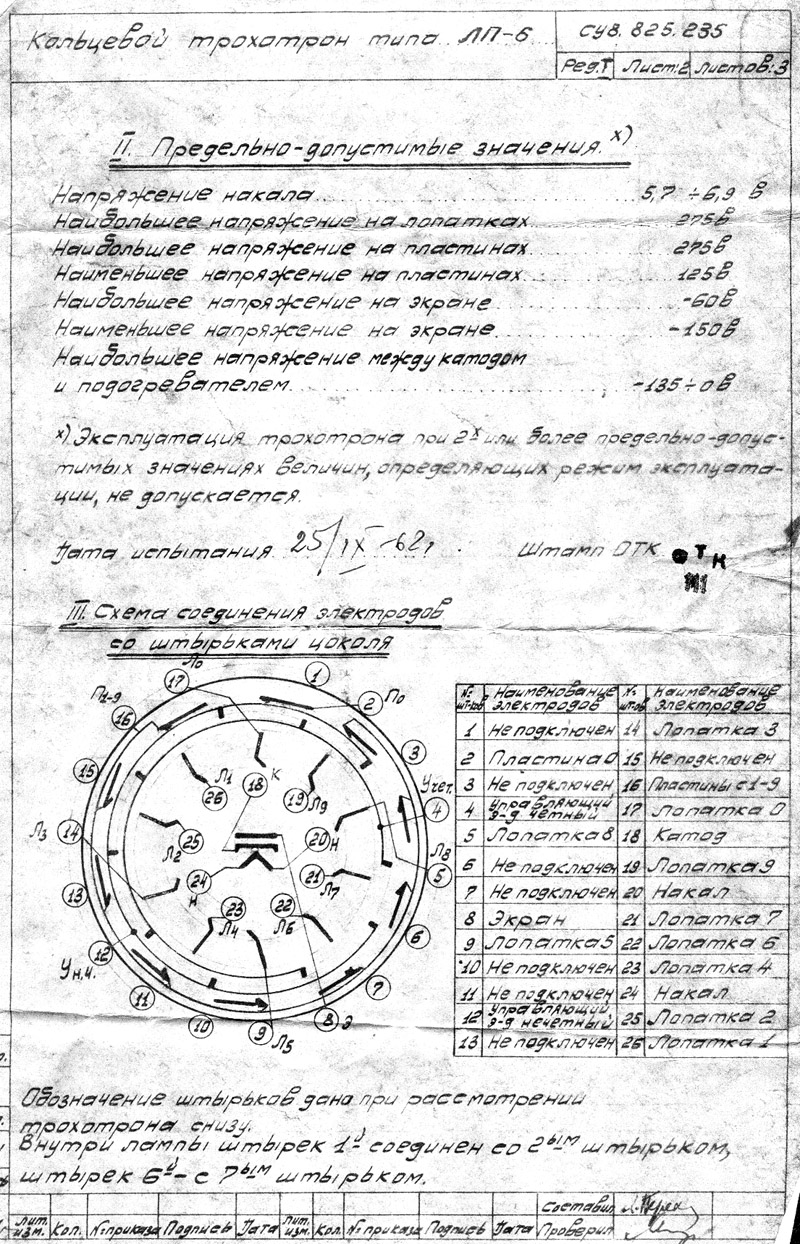 Кольцевой трохотрон типа ЛП-6
СУ8.825.235
Ред.1 Лист:2 Листов:3
II. Предельно-допустимые значения. х)
Напряжение накала 5,7 ÷ 6,9 в
Наибольшее напряжение на лопатках 275в
Наибольшее напряжение на пластинах 275в
Наименьшее напряжение на пластинах 125в
Наибольшее напряжение на экране -60в
Наименьшее напряжение на экране -150в
Наибольшее напряжение между катодом
и подогревателем -135÷0в
х) Эксплуатация трохотрона при 2х или более предельно-допус-
тимых значениях величин, определяющих режим эксплуата-
ции, не допускается.
Дата испытания 25/IX-62г
Штамп ОТК
ОТК
III. Схема соединения электродов
со штырьками цоколя
Ло
17
1
2 По
П1-9
16
3
15
Л1
26
18
К
19 Л9
Учет.
4
Л3
14
Л2
25
20 Н
Л8
5
24
Н
21 Л7
13
23
Л4
22
Л6
6
12
Ун.ч.
11
10
9 Л5
8 Э
7
№ шт-ков Наименование электродов № шт-ов Наименование электродов
1 Не подключен 14 Лопатка 3
2 Пластина 0 15 Не подключен
3 Не подключен 16 Пластины с 1-9
4 Управляющий э-д четный 17 Лопатка 0
5 Лопатка 8 18 Катод
6 Не подключен 19 Лопатка 9
7 Не подключен 20 Накал
8 Экран 21 Лопатка 7
9 Лопатка 5 22 Лопатка 6
10 Не подключен 23 Лопатка 4
11 Не подключен 24 Накал
12 Управляющий э-д нечетный 25 Лопатка 2
13 Не подключен 26 Лопатка 1
Обозначение штырьков дано при рассмотрении
трохотрона снизу.
Внутри лампы штырек 1й соединен со 2ым штырьком,
штырек 6й - с 7ым штырьком.
Составил
Лит. изм. Кол. № приказа Подпись Дата Лит. изм. Кол. № приказа Подпись Дата Проверил